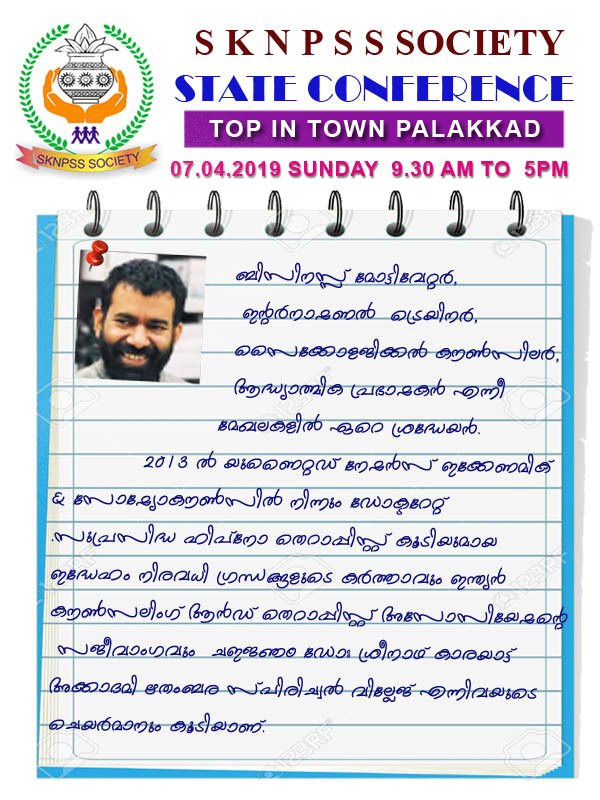 S K N P S S SOCIETY
STATE CONFERENCE
TOP IN TOWN PALAKKAD
SKNPSS SOCIETY
07.04.2019 SUNDAY 9.30 AM TO 5PM
ബിസിനസ്സ് മോട്ടിവേറ്റർ,
ഇന്റർനാഷണൽ ട്രെയിനർ,
സൈക്കോളജിക്കൽ കൗൺസിലർ,
ആദ്ധ്യാത്മിക പ്രഭാഷകൻ എന്നീ
മേഖലകളിൽ ഏറെ ശ്രദ്ധേയൻ.
2013 ൽ യുണൈറ്റഡ് നേഷൻസ് ഇക്കേണമിക്
& സോഷ്യോകൗൺസിൽ നിന്നും ഡോക്ടറേറ്റ്
.സുപ്രസിദ്ധ ഹിപ്നോ തെറാപ്പിസ്റ്റ് കൂടിയുമായ
ഇദ്ധേഹം നിരവധി ഗ്രന്ഥങ്ങളുടെ കർത്താവും ഇന്ത്യൻ
കൗൺസലിംഗ് ആൻഡ് തെറാപ്പിസ്റ്റ് അസോസിയേഷന്റെ
സജീവാംഗവും ഡോഃ ശ്രീനാഥ് കാരയാട്ട്
അക്കാദമി ഋതംബര സ്പിരിച്വൽ വില്ലേജ് എന്നിവയുടെ
ചെയർമാനും കൂടിയാണ്.
123RF